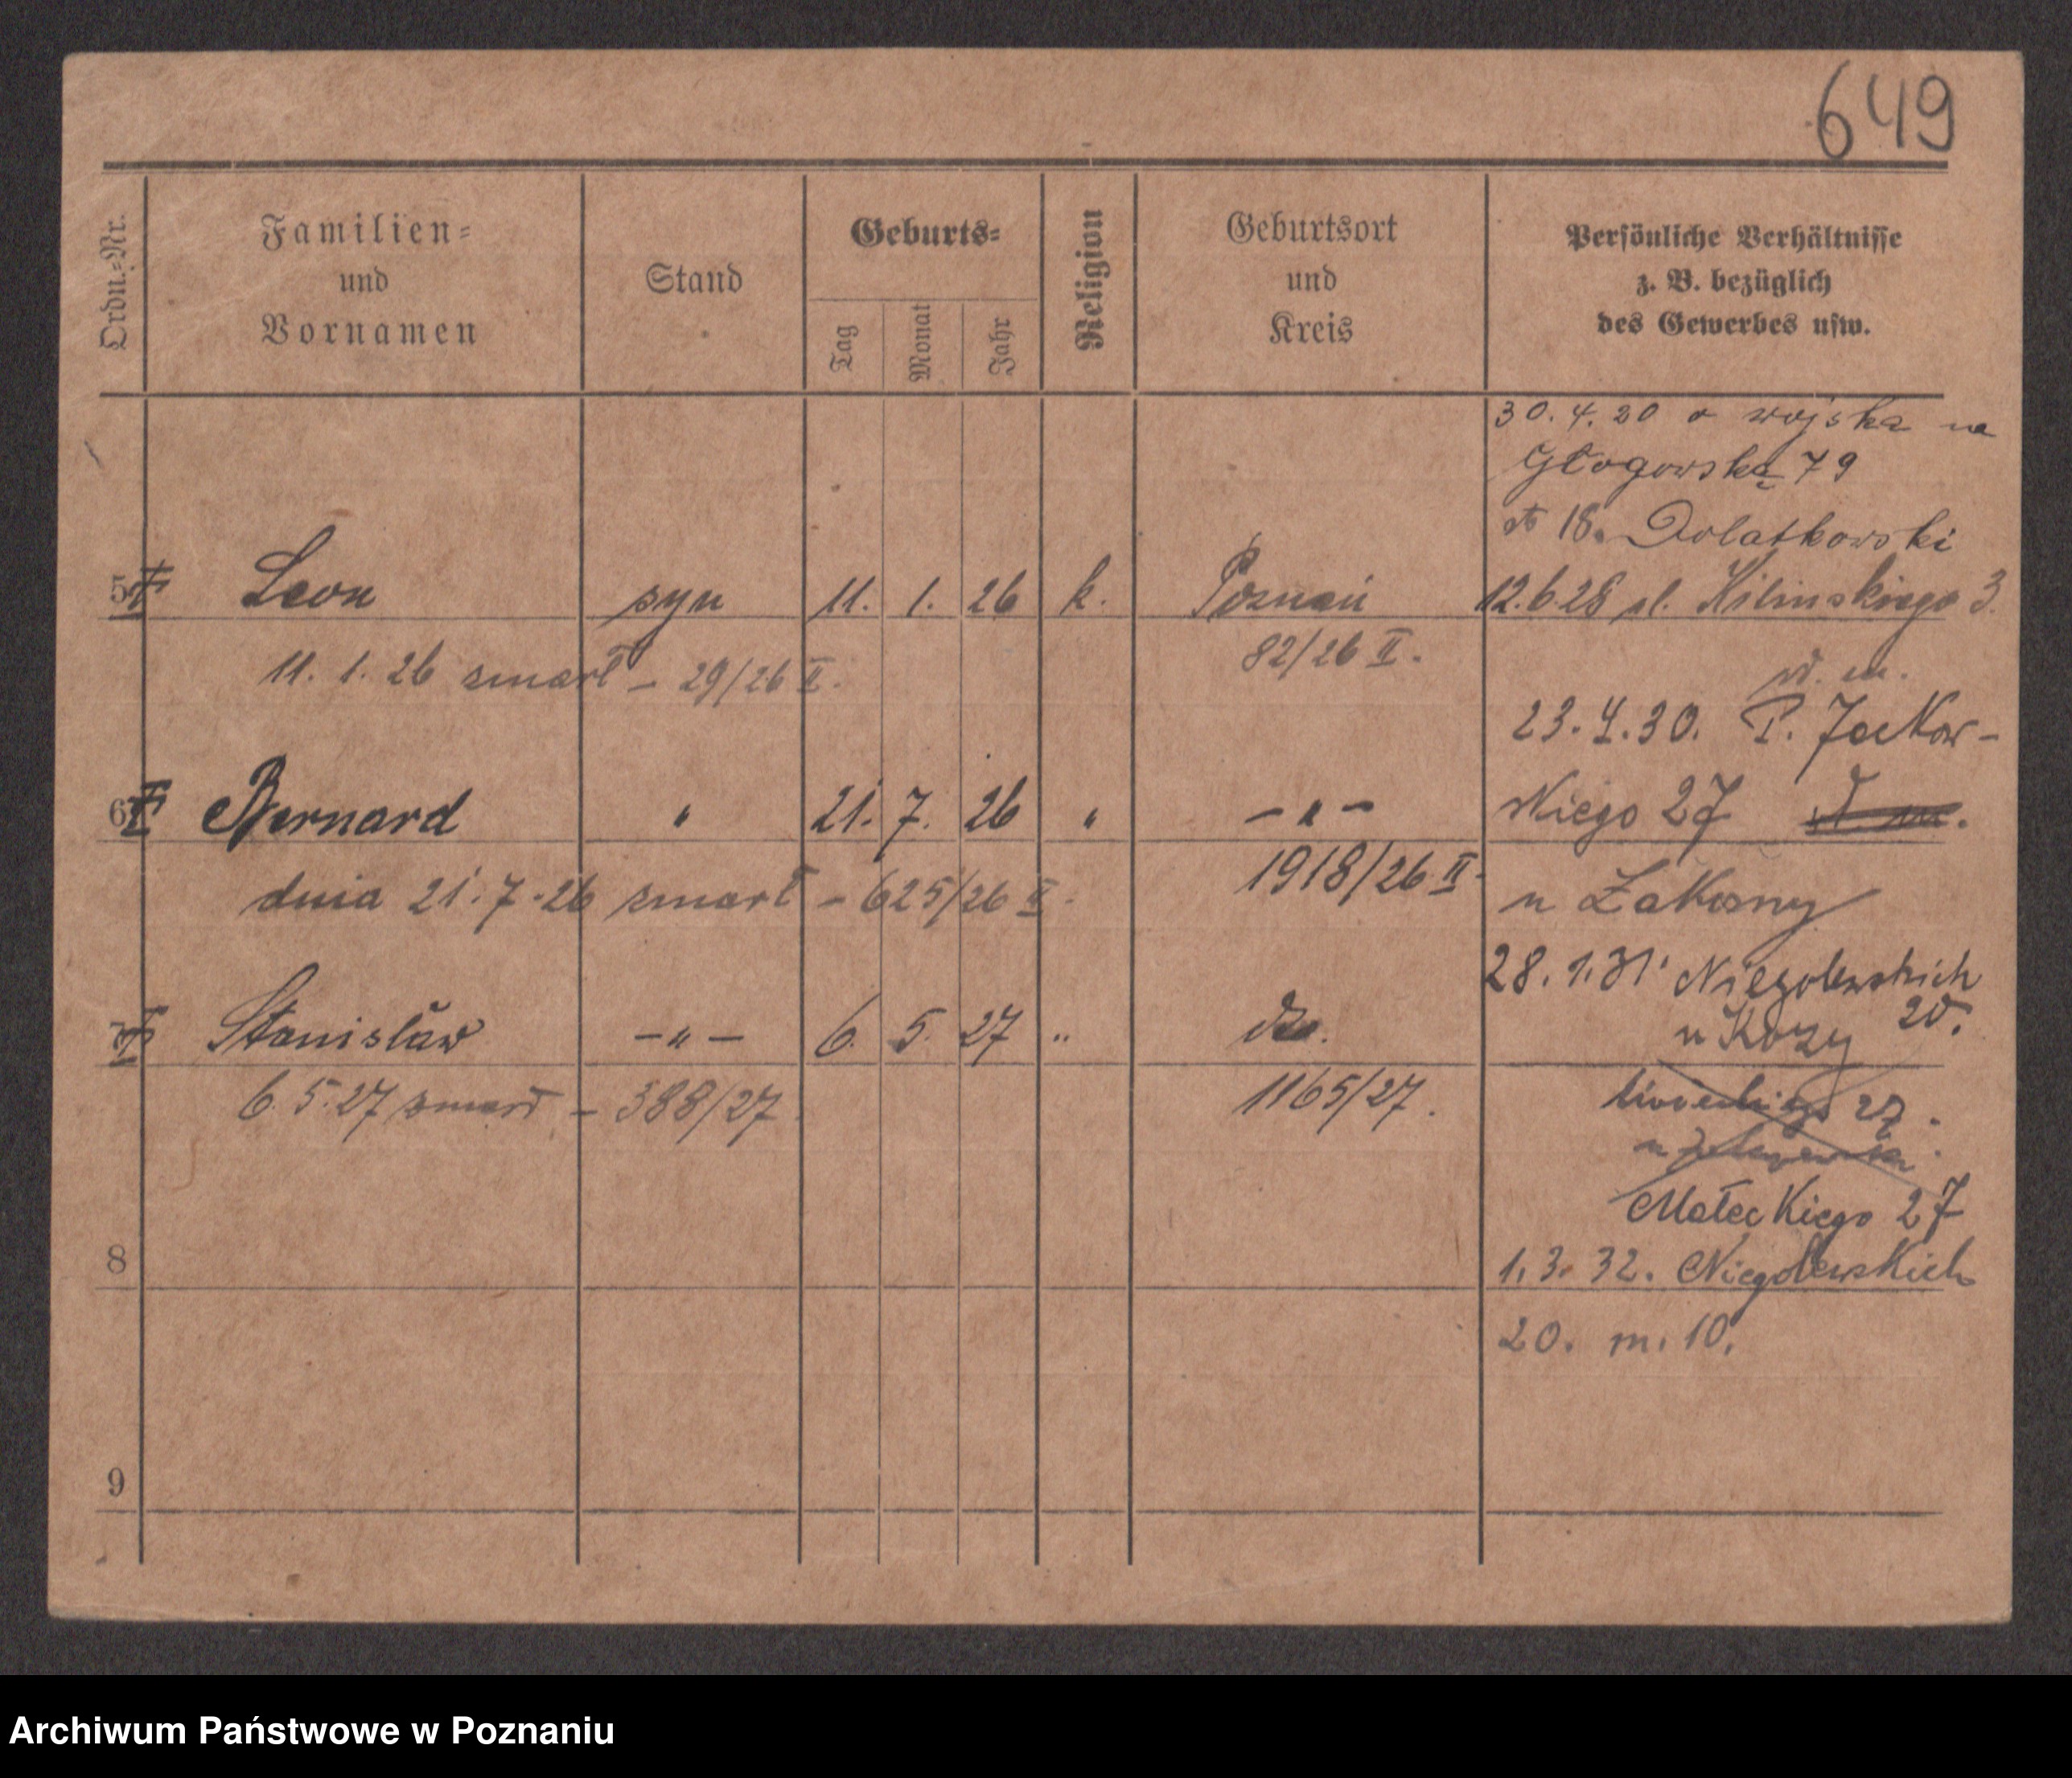 649
Ordn.-Nr.
Familien-
und
Vornamen
Stand
Geburts-
Tag
Monat
Jahr
Religion
Geburtsort
und
Kreis
Persönliche Verhältnisse
z. B. bezüglich
des Gewerbes usw.
30.4.20 wojska na
Głogowską 79
18. Dolatkowski
5 Leon syn 11. 1. 26 k. Poznań 12.6.28 pl. Kilinskiego 3.
11. 1. 26 zmarł – 29/26 II. 82/26 II.
23.4.30. P. Jackow-
6 Bernard " 21. 7. 26 " – " – skiego 27
dnia 21.7.26 zmarł – 625/26 II. 1918/26 II.
u Zakosny
28.1.31 Niegolewskich
20.
7 Stanisław – " – 6. 5. 27 " dto. u Kozy
6. 5. 27 zmarł – 388/27. 1165/27.
27.
Małeckiego 27
8 1.3.32. Niegolewskich
20. m. 10.
9
Archiwum Państwowe w Poznaniu